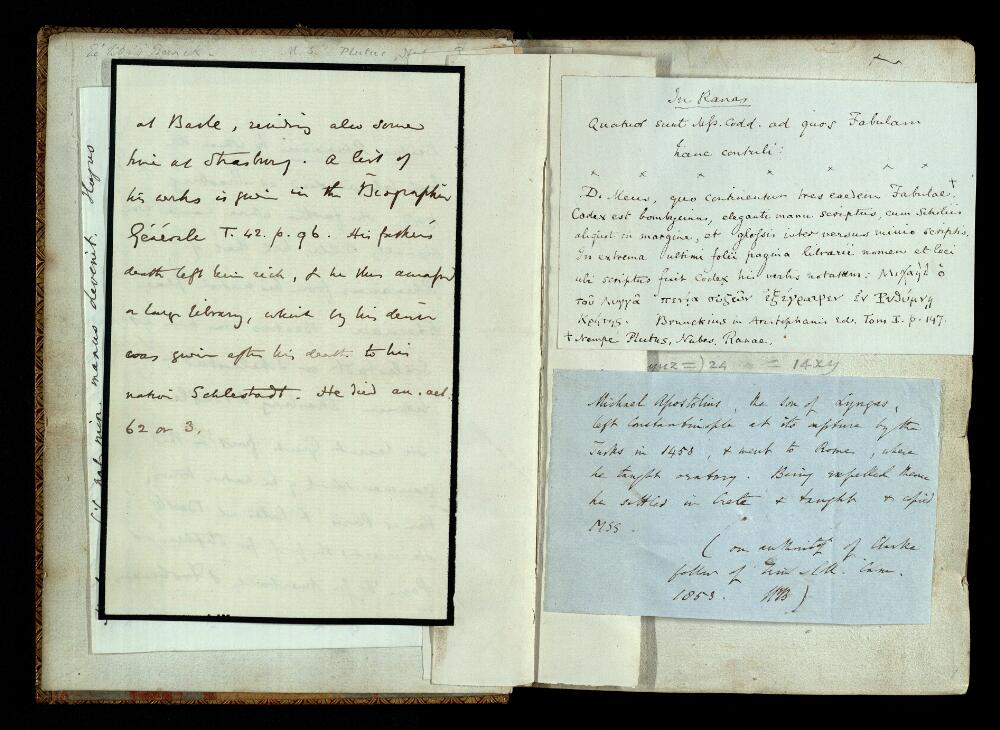 M. S. Plutus
at Basle, residing also some
time at Strasburg. A list of
his works is given in the Biographie
Générale T. 42. p. 96. His father's
death left him rich, & he thus amassed
a large library, which by his desire
was given after his death to his
native Schlestadt. He died an. aet.
62 or 3.
manus devenit. Hujus
In Ranas
Quatuor sunt Mss. Codd. ad quos Fabulam
hanc contuli:
× × × × × ×
D. Meus, quo continentur tres eaedem Fabulae.†
Codex est bombycinus, eleganti manu scriptus, cum Scholiis
aliquot in margine, et glossis inter versus minio scriptis.
In extrema ultimi folii pagina librarii nomen et loci
ubi scriptus fuit Codex his verbis notatum: Μιχαῆλ ὁ
τοῦ Λυγγᾶ πενίᾳ συζῶν ἐξέγραψεν ἐν Ῥιθύμνῃ
Κρήτης. Brunckius in Aristophanis Edv. Tom I. p. 147.
† Nempe Plutus, Nubes, Ranae.
= ) 24 = 14xy
Michael Apostolius, the son of Lyngas,
left Constantinople at its capture by the
Turks in 1453, & went to Rome, where
he taught oratory. Being expelled thence
he settled in Crete & taught & copied
MSS.
( on authority of Clarke
fellow of Trin. Coll. Cam.
1853. )